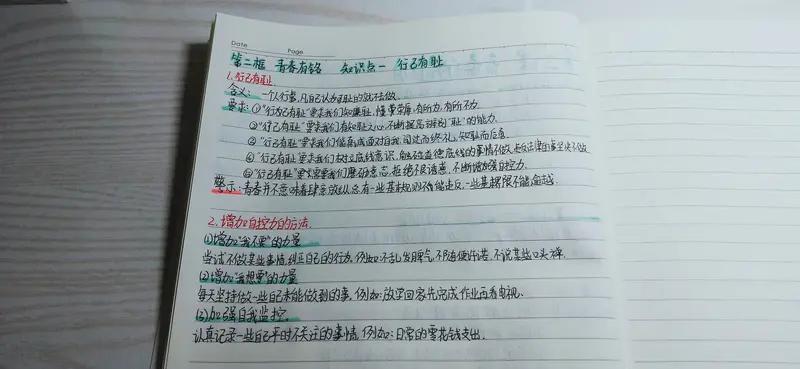 Date Page
第二框 青春有格 知识点一 行己有耻
1.行己有耻.
含义:一个人行事,凡自己认为可耻的就不去做.
要求:①"行己有耻"要求我们知廉耻,懂荣辱,有所为,有所不为.
②"行己有耻"要求我们有知耻之心,不断提高辨别"耻"的能力.
③"行己有耻"要求我们 闻过而终礼,知耻而后勇.
④"行己有耻"要求我们树立底线意识,触碰道德底线的事情不做,违反法律的事坚决不做
⑤"行己有耻"要求我们磨砺意志,拒绝不良诱惑,不断增强自控力.
警示:青春并不意味着肆意放纵,总有一些基本规则不能违反,一些基本界限不能逾越.
2.增加自控力的方法.
(1)增加"我不要"的力量
尝试不做某些事情,纠正自己的行为,例如:不乱发脾气,不随便许诺,不说某些口头禅.
(2)增加"我想要"的力量
每天坚持做一些自己未能做到的事,例如:放学回家先完成作业再看电视.
(3)加强自我监控.
认真记录一些自己平时不关注的事情,例如:日常的零花钱支出.